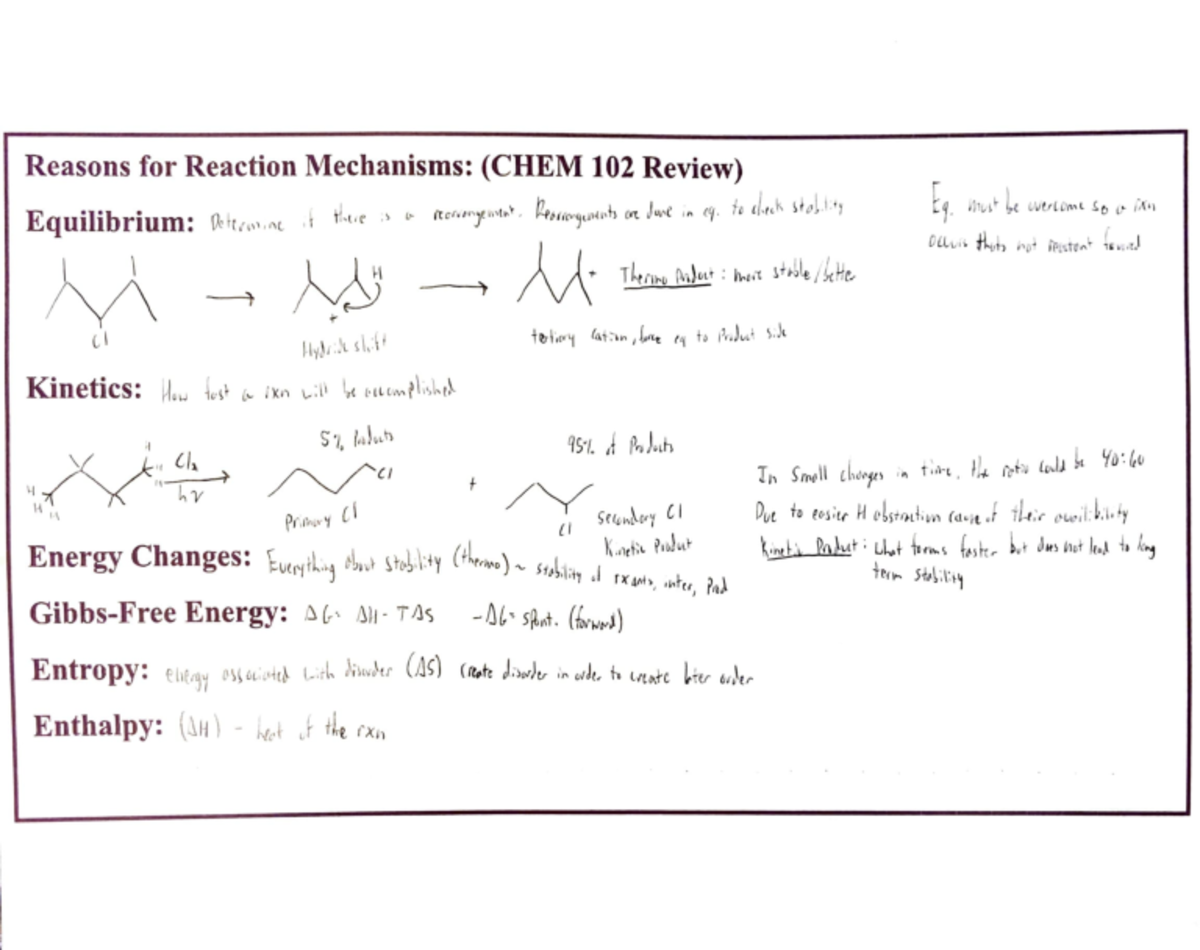 Reasons for Reaction Mechanisms: (CHEM 102 Review)
Equilibrium: Determine if there is a rearrangement. Rearrangements are done in eq. to check stability
Eq. must be overcome so a rxn
occurs thats not forward
H
+ Thermo Product: more stable/better
Cl
+
Hydride shift
tertiary cation, force eq to Product side
Kinetics: How fast a rxn will be accomplished
5% Products
95% of Products
H
H
H
H
H
H
Cl₂
hν
Cl
+
Cl
Primary Cl
Secondary Cl
Kinetic Product
In small changes in time, the ratio could be 40:60
Due to easier H abstraction cause of their availibility
Kinetic Product: what forms faster but does not lead to long
term stability
Energy Changes: Everything about stability (thermo) ~ stability of rxants, inter, Prod
Gibbs-Free Energy: ΔG= ΔH - TΔS -ΔG= spont. (forward)
Entropy: energy associated with disorder (ΔS) create disorder in order to create order
Enthalpy: (ΔH) - heat of the rxn